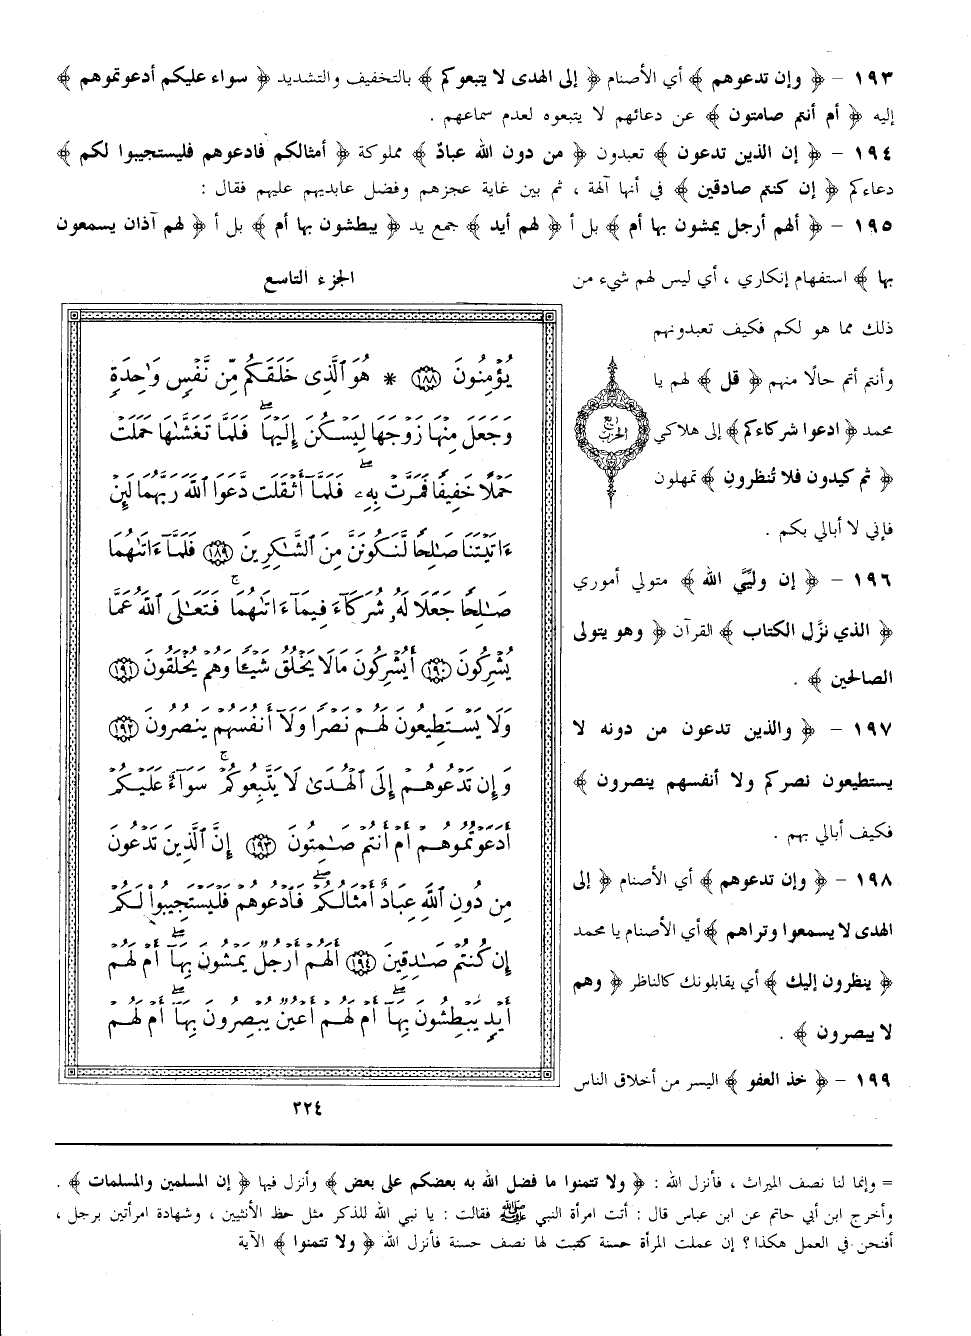 ١٩٣ - ﴿ وإن تدعوهم ﴾ أي الأصنام ﴿ إلى الهدى لا يتبعوكم ﴾ بالتخفيف والتشديد ﴿ سواء عليكم أدعوتموهم ﴾
إليه ﴿ أم أنتم صامتون ﴾ عن دعائهم لا يتبعوه لعدم سماعهم .
١٩٤ - ﴿ إن الذين تدعون ﴾ تعبدون ﴿ من دون الله عبادٌ ﴾ مملوكة ﴿ أمثالكم فادعوهم فليستجيبوا لكم ﴾
دعاءكم ﴿ إن كنتم صادقين ﴾ في أنها آلهة ، ثم بين غاية عجزهم وفضل عابديهم عليهم فقال :
١٩٥ - ﴿ ألهم أرجل يمشون بها أم ﴾ بل أ ﴿ لهم أيد ﴾ جمع يد ﴿ يبطشون بها أم ﴾ بل أ ﴿ لهم آذان يسمعون
بها ﴾ استفهام إنكاري ، أي ليس لهم شيء من
ذلك مما هو لكم فكيف تعبدونهم
وأنتم أتم حالًا منهم ﴿ قل ﴾ لهم يا
محمد ﴿ ادعوا شركاءكم ﴾ إلى هلاكي
﴿ ثم كيدون فلا تُنظرونِ ﴾ تمهلون
فإني لا أبالي بكم .
١٩٦ - ﴿ إن وليَّي الله ﴾ متولي أموري
﴿ الذي نزَّل الكتاب ﴾ القرآن ﴿ وهو يتولى
الصالحين ﴾ .
١٩٧ - ﴿ والذين تدعون من دونه لا
يستطيعون نصركم ولا أنفسهم ينصرون ﴾
فكيف أبالي بهم .
١٩٨ - ﴿ وإن تدعوهم ﴾ أي الأصنام ﴿ إلى
الهدى لا يسمعوا وتراهم ﴾ أي الأصنام يا محمد
﴿ ينظرون إليك ﴾ أي يقابلونك كالناظر ﴿ وهم
لا يبصرون ﴾ .
١٩٩ - ﴿ خذ العفو ﴾ اليسر من أخلاق الناس
الجزء التاسع
ربع
الحزب
يُؤْمِنُونَ ﴿١٨٨﴾ * هُوَ ٱلَّذِى خَلَقَكُم مِّن نَّفْسٍ وَٰحِدَةٍ
وَجَعَلَ مِنْهَا زَوْجَهَا لِيَسْكُنَ إِلَيْهَاۖ فَلَمَّا تَغَشَّىٰهَا حَمَلَتْ
حَمْلًا خَفِيفًا فَمَرَّتْ بِهِۦۖ فَلَمَّآ أَثْقَلَت دَّعَوَا ٱللَّهَ رَبَّهُمَا لَئِنْ
ءَاتَيْتَنَا صَٰلِحًا لَّنَكُونَنَّ مِنَ ٱلشَّٰكِرِينَ ﴿١٨٩﴾ فَلَمَّآ ءَاتَىٰهُمَا
صَٰلِحًا جَعَلَا لَهُۥ شُرَكَآءَ فِيمَآ ءَاتَىٰهُمَاۚ فَتَعَٰلَى ٱللَّهُ عَمَّا
يُشْرِكُونَ ﴿١٩٠﴾ أَيُشْرِكُونَ مَا لَا يَخْلُقُ شَيْـًٔا وَهُمْ يُخْلَقُونَ ﴿١٩١﴾
وَلَا يَسْتَطِيعُونَ لَهُمْ نَصْرًا وَلَآ أَنفُسَهُمْ يَنصُرُونَ ﴿١٩٢﴾
وَإِن تَدْعُوهُمْ إِلَى ٱلْهُدَىٰ لَا يَتَّبِعُوكُمْۚ سَوَآءٌ عَلَيْكُمْ
أَدَعَوْتُمُوهُمْ أَمْ أَنتُمْ صَٰمِتُونَ ﴿١٩٣﴾ إِنَّ ٱلَّذِينَ تَدْعُونَ
مِن دُونِ ٱللَّهِ عِبَادٌ أَمْثَالُكُمْۖ فَٱدْعُوهُمْ فَلْيَسْتَجِيبُوا۟ لَكُمْ
إِن كُنتُمْ صَٰدِقِينَ ﴿١٩٤﴾ أَلَهُمْ أَرْجُلٌ يَمْشُونَ بِهَآۖ أَمْ لَهُمْ
أَيْدٍ يَبْطِشُونَ بِهَآۖ أَمْ لَهُمْ أَعْيُنٌ يُبْصِرُونَ بِهَآۖ أَمْ لَهُمْ
٢٢٤
= وإنما لنا نصف الميراث ، فأنزل الله : ﴿ ولا تتمنوا ما فضل الله به بعضكم على بعض ﴾ وأنزل فيها ﴿ إن المسلمين والمسلمات ﴾ .
وأخرج ابن أبي حاتم عن ابن عباس قال : أتت امرأة النبي ﷺ فقالت : يا نبي الله للذكر مثل حظ الأنثيين ، وشهادة امرأتين برجل ،
أفنحن في العمل هكذا ؟ إن عملت المرأة حسنة كتبت لها نصف حسنة فأنزل الله ﴿ ولا تتمنوا ﴾ الآية